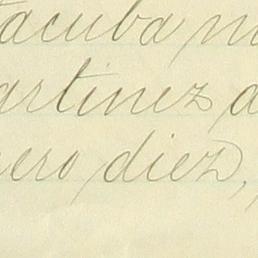 tacuba m
artinez a
nero diez,